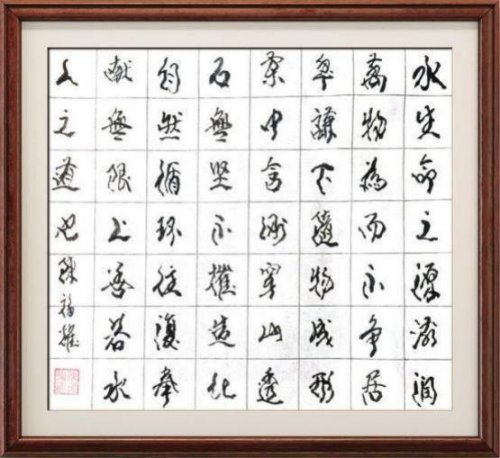 水生命之源滋润
萬物為而不争居
卑謙下隨物成形
柔中含剛穿山透
石無坚不摧造化
自然循环往復奉
献無限上善若水
人之道也 陳福